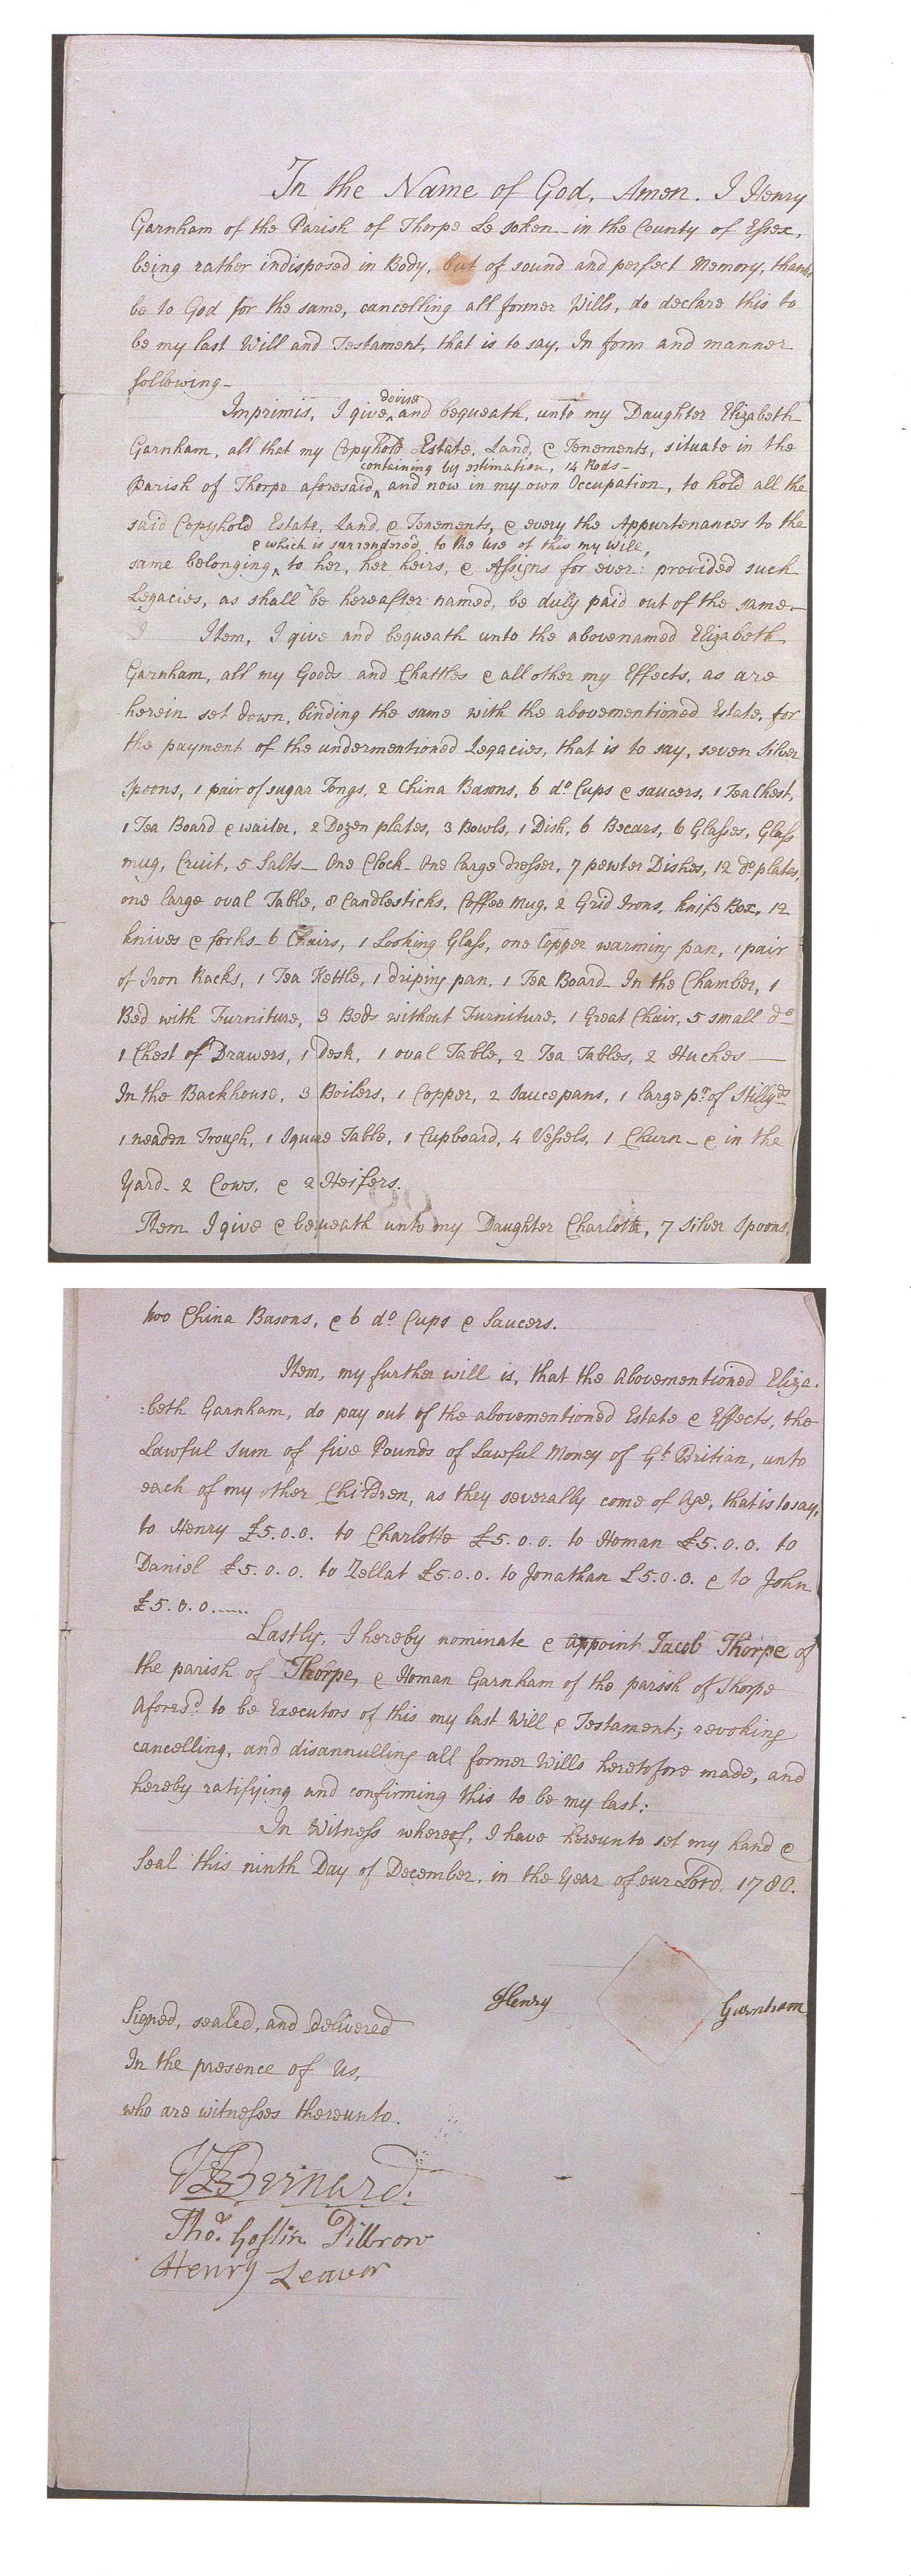 In the Name of God, Amen. I Henry
Garnham of the Parish of Thorpe Le soken in the County of Essex,
being rather indisposed in Body, but of sound and perfect Memory, thanks
be to God for the same, cancelling all former Wills, do declare this to
be my last Will and Testament, that is to say, In form and manner
following-
devise
Imprimis, I give ^ and bequeath, unto my Daughter Elizabeth
Garnham, all that my Copyhold Estate, Land, & Tenements, situate in the
containing by estimation, 14 Rods-
Parish of Thorpe aforesaid ^ and now in my own Occupation, to hold all the
said Copyhold Estate, Land, & Tenements, & every the Appurtenances to the
& which is surrendered to the Use of this my Will,
same belonging ^ to her, her heirs, & Assigns for ever: provided such
Legacies, as shall be hereafter named, be duly paid out of the same-
Item, I give and bequeath unto the abovenamed Elizabeth
Garnham, all my Goods and Chattles & all other my Effects, as are
herein set down, binding the same with the abovementioned Estate, for
the payment of the undermentioned Legacies, that is to say, seven Silver
Spoons, 1 pair of sugar Tongs, 2 China Basons, 6 do Cups & saucers, 1 Tea Chest,
1 Tea Board & waiter, 2 Dozen plates, 3 Bowls, 1 Dish, 6 Becars, 6 Glasses, Glass
mug, Cruit, 5 Salts- One Clock- One large dresser, 7 pewter Dishes, 12 do plates,
one large oval Table, 8 Candlesticks, Coffee Mug, 2 Grid Irons, knife Box, 12
knives & forks- 6 Chairs, 1 Looking Glass, one Copper warming pan, 1 pair
of Iron Racks, 1 Tea Kettle, 1 driping pan, 1 Tea Board- In the Chamber, 1
Bed with Furniture, 3 Beds without Furniture, 1 Great Chair, 5 small do
1 Chest of Drawers, 1 Desk, 1 oval Table, 2 Tea Tables, 2 Huches-
In the Backhouse, 3 Boilers, 1 Copper, 2 Saucepans, 1 large pr of Stillyds
1 neaden Trough, 1 Square Table, 1 Cupboard, 4 Vessels, 1 Churn- & in the
Yard- 2 Cows, & 2 Heifers.
Item I give & bequeath unto my Daughter Charlotte, 7 silver Spoons,
two China Basons, & 6 do Cups & Saucers.
Item, my further will is, that the abovementioned Eliza-
:beth Garnham, do pay out of the abovementioned Estate & Effects, the
Lawful Sum of five Pounds of Lawful Money of Gt Britian, unto
each of my other Children, as they severally come of Age, that is to say,
to Henry £5.0.0. to Charlotte £5.0.0. to Homan £5.0.0. to
Daniel £5.0.0. to Zellat £5.0.0. to Jonathan £5.0.0. & to John
£5.0.0.
Lastly, I hereby nominate & appoint Jacob Thorpe of
the parish of Thorpe, & Homan Garnham of the parish of Thorpe
Aforesd to be Executors of this my last Will & Testament; revoking
cancelling, and disannulling all former Wills heretofore made, and
hereby ratifying and confirming this to be my last:
In Witness whereof, I have hereunto set my hand &
Seal this ninth Day of December, in the Year of our Lord, 1780.
Henry Garnham
Signed, sealed, and delivered
In the presence of Us,
who are witnesses thereunto.
Bernard.
Thos. Goslin Pillrow
Henry Leavor